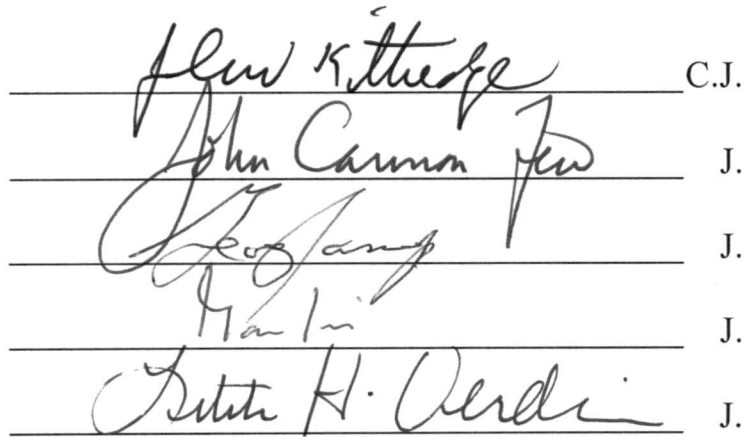 John Kittredge C.J.
John Cannon Few J.
Geo James J.
J.
Letitia H. Verdin J.